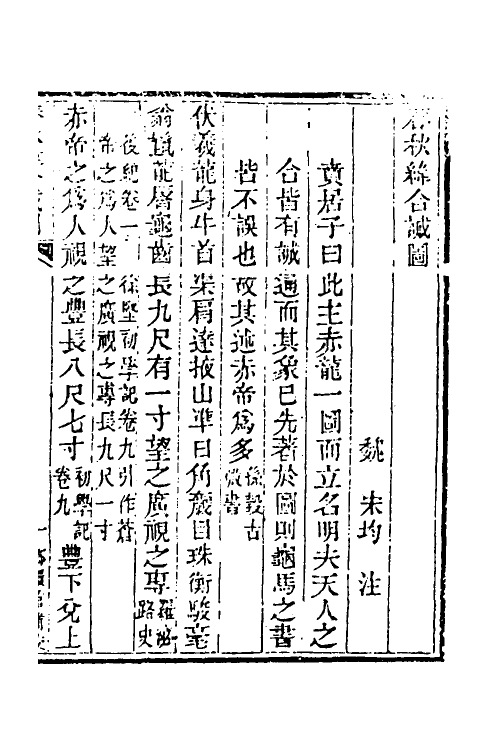 春秋緯合誠圖
魏　宋均　注
賁居子曰此主赤龍一圖而立名明夫天人之
合皆有誠遍而其象已先著於圖則龜馬之書
皆不誤也故其述赤帝爲多孫瑴古微書
伏羲龍身牛首渠肩達掖山準日角奯目珠衡駿毫
翁鬣龍脣龜齒長九尺有一寸望之廣視之專羅泌路史
後紀卷一　徐堅初學記卷九引作蒼
帝之爲人望之廣視之專長九尺一寸
赤帝之爲人視之豐長八尺七寸初學記卷九　豐下兌上